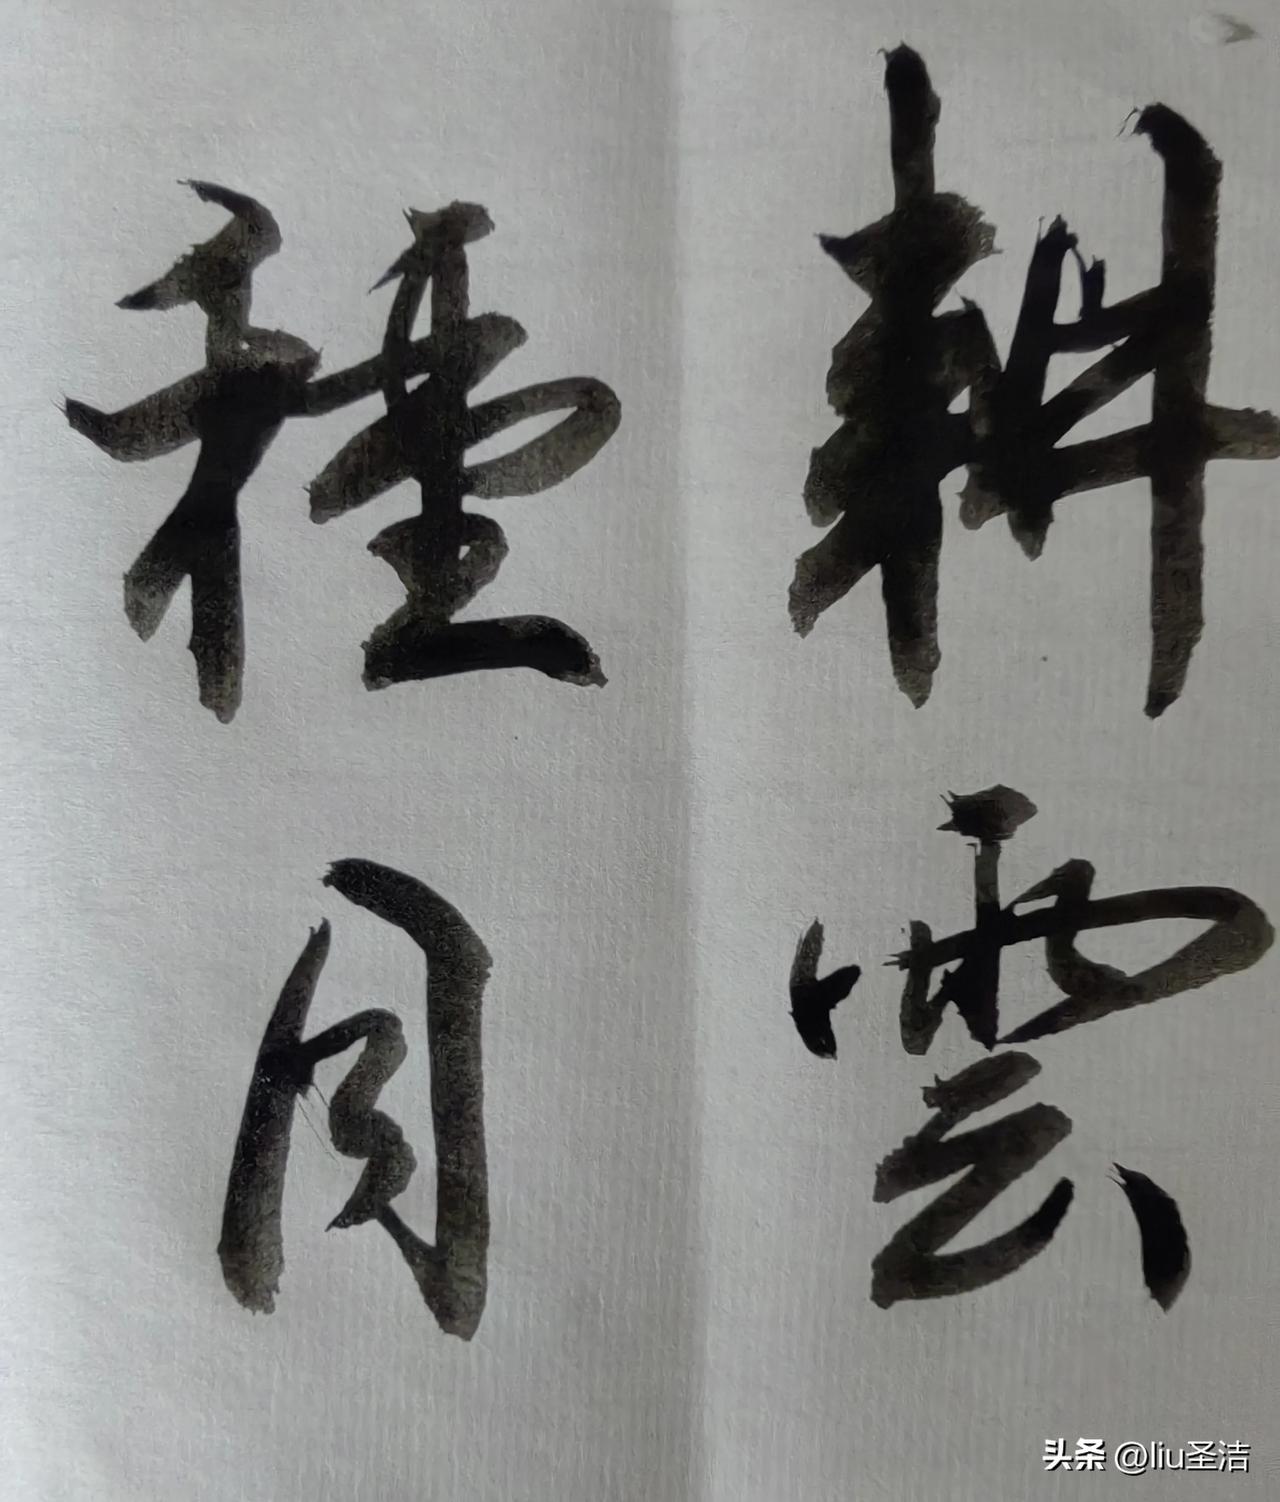 耕雲
種月
头条 @liu圣洁